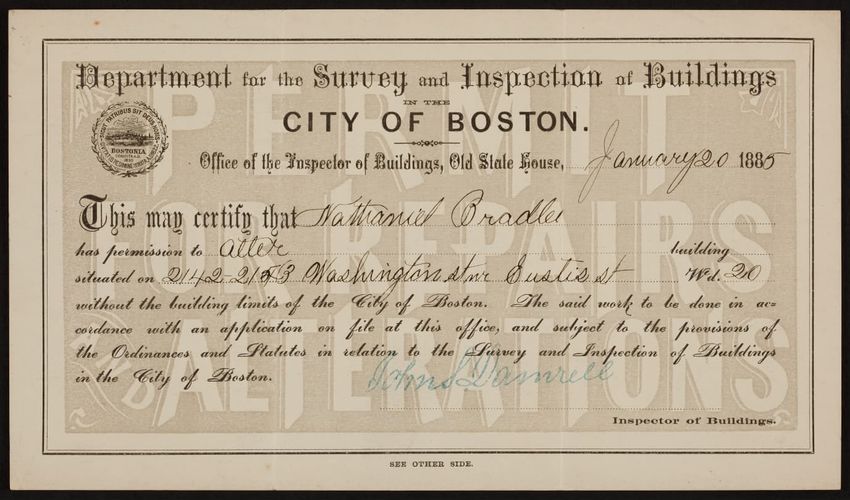 Department for the Survey and Inspection of Buildings
IN THE
CITY OF BOSTON.
Office of the Inspector of Buildings, Old State House, January 20 1885
This may certify that Nathaniel Bradlee
has permission to alter building
situated on 2142-2153 Washington st nr Eustis st Wd. 20
without the building limits of the City of Boston. The said work to be done in ac-
cordance with an application on file at this office, and subject to the provisions of
the Ordinances and Statutes in relation to the Survey and Inspection of Buildings
in the City of Boston.
John S Damrell
Inspector of Buildings.
SEE OTHER SIDE.
PERMIT
FOR REPAIRS
AND ALTERATIONS
BOSTONIA